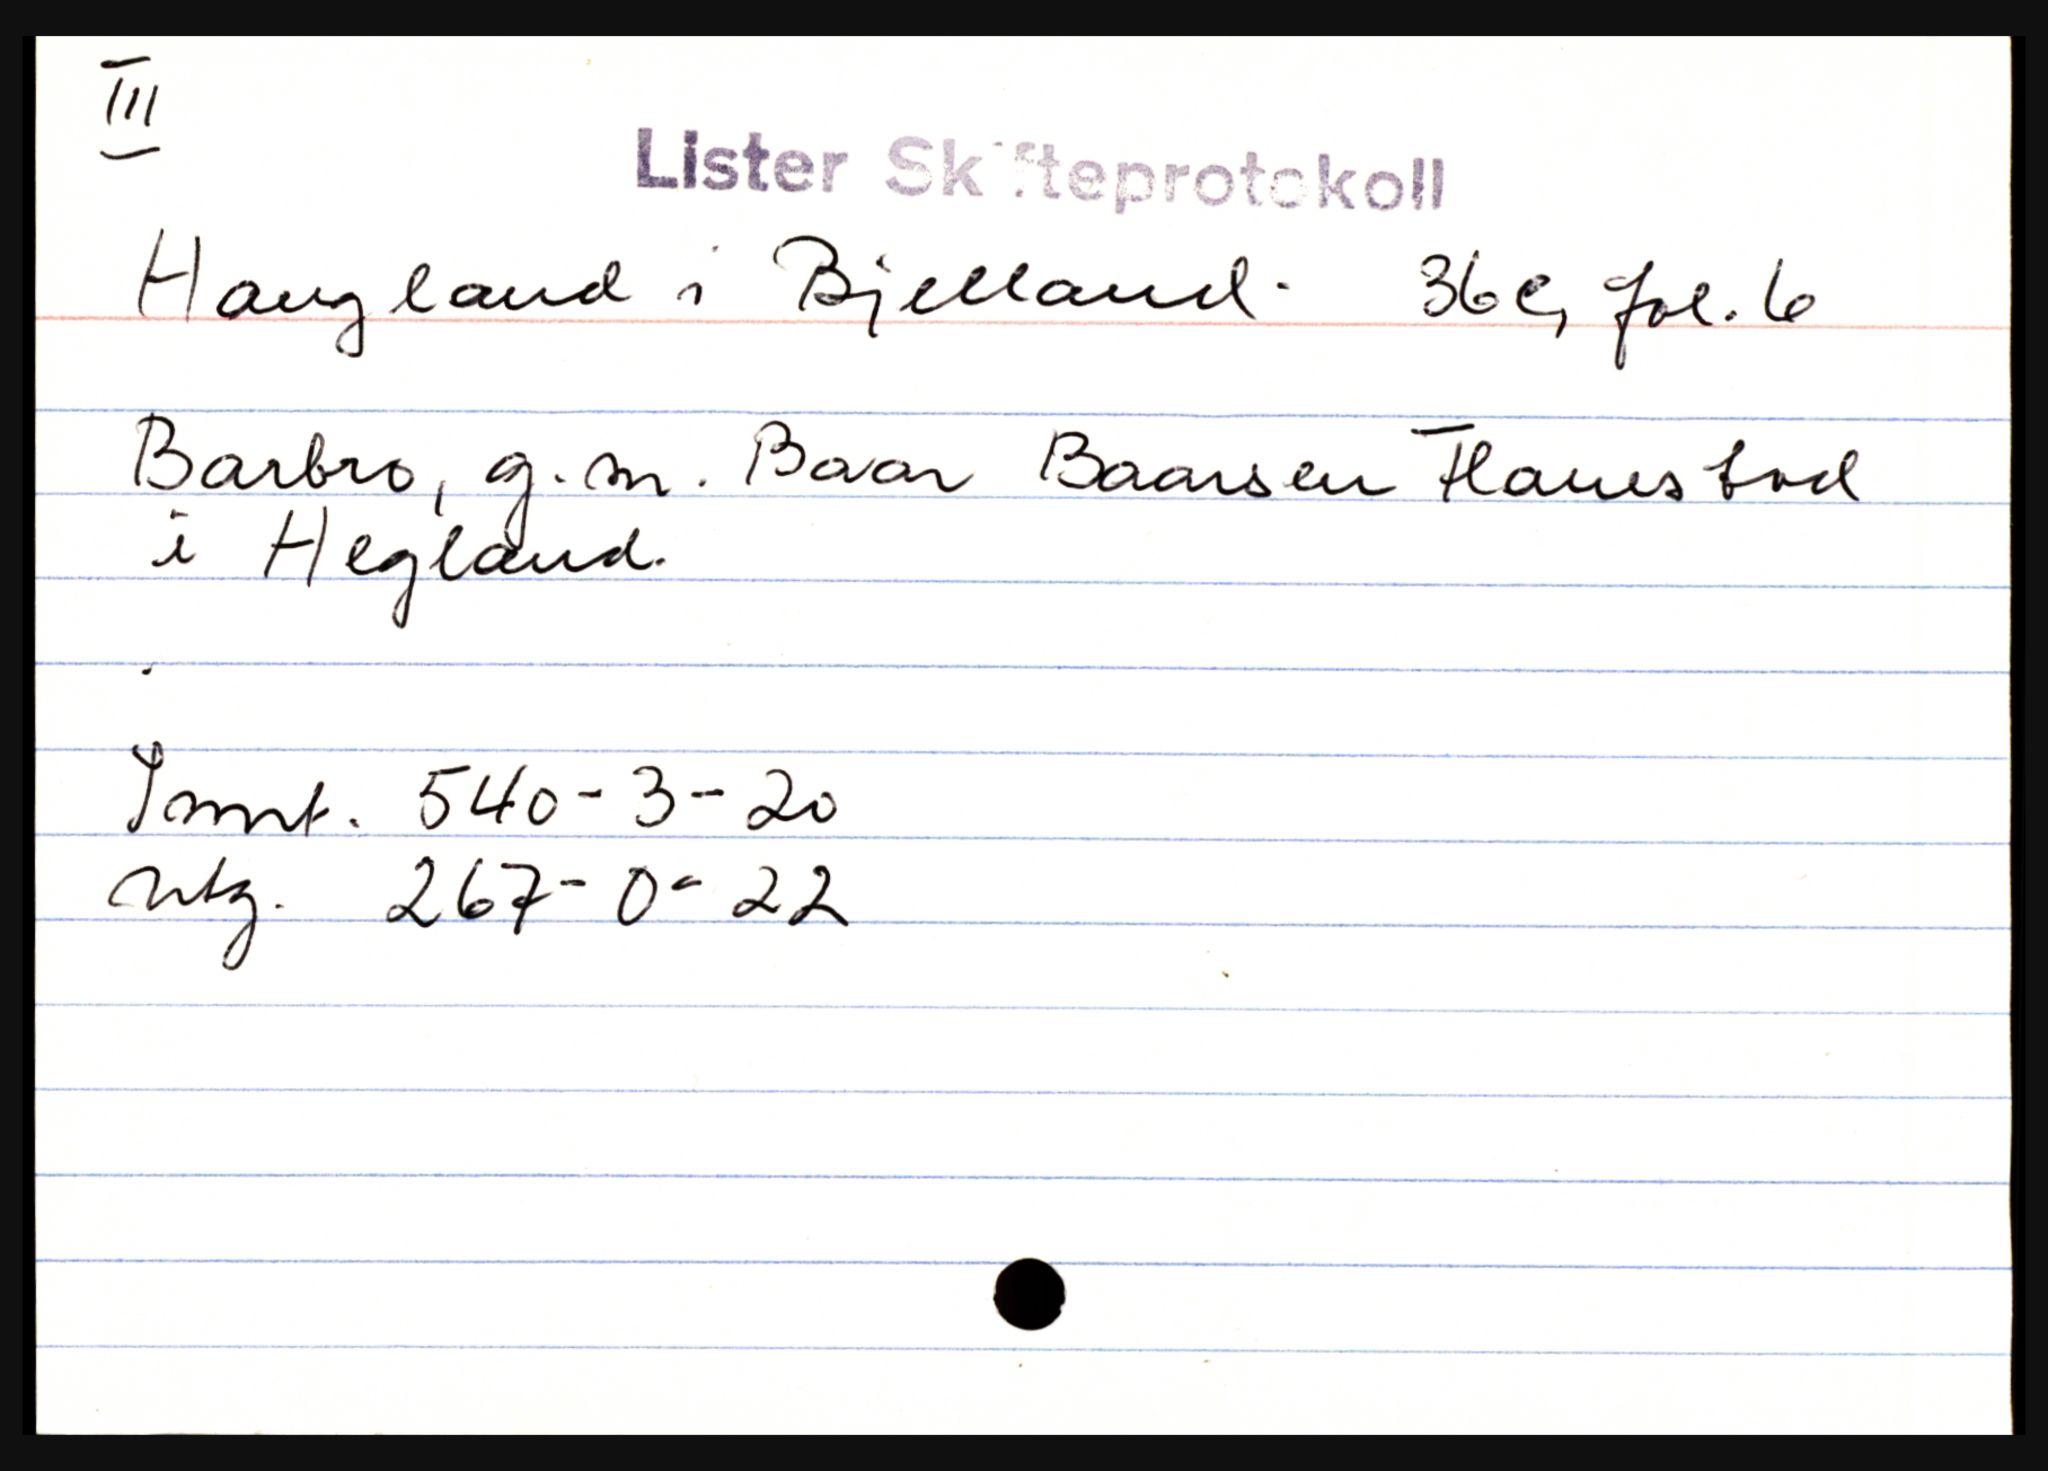 III
Lister Skifteprotokoll
Haugland i Bjelland. 36e, fol. 6
Barbro, g.m. Baar Baarsen Flanestad
i Hegland.
Innt. 540-3-20
Utg. 267-0-22